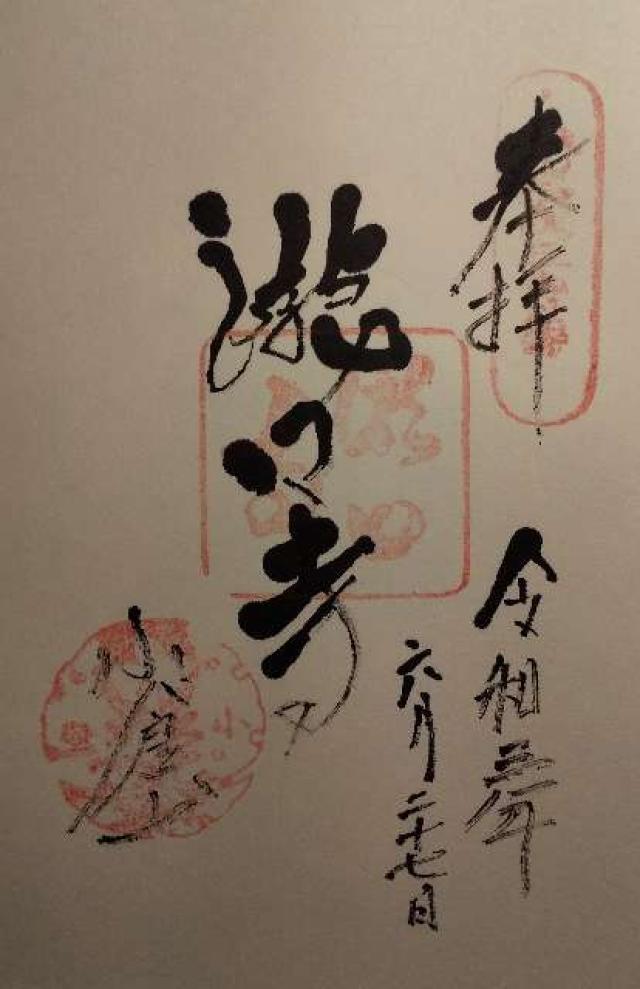 奉拝
令和三年
六月二十七日
瀧口寺
小倉山